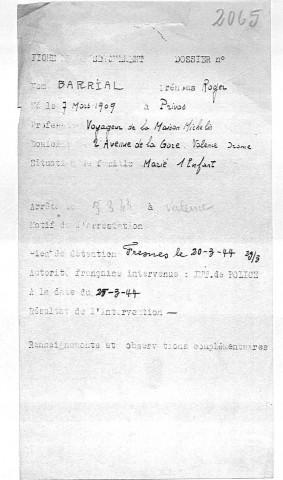 2065
FICHE DE RENSEIGNEMENT DOSSIER n°
Nom BARRIAL Prénoms Roger
Né le 7 Mars 1909 à Privas
Profession Voyageur de la Maison Michelin
Domicile 2 Avenue de la Gare. Valence Drome
Situation de famille Marié 1 Enfant
Arrêté le 3 44 à Valence
Motif de l'Arrestation
Lieu de détention Fresnes le 20-3-44
Autorité française intervenue : INT. de POLICE
A la date du 25-3-44
Résultat de l'Intervention —
Renseignements et observations complémentaires